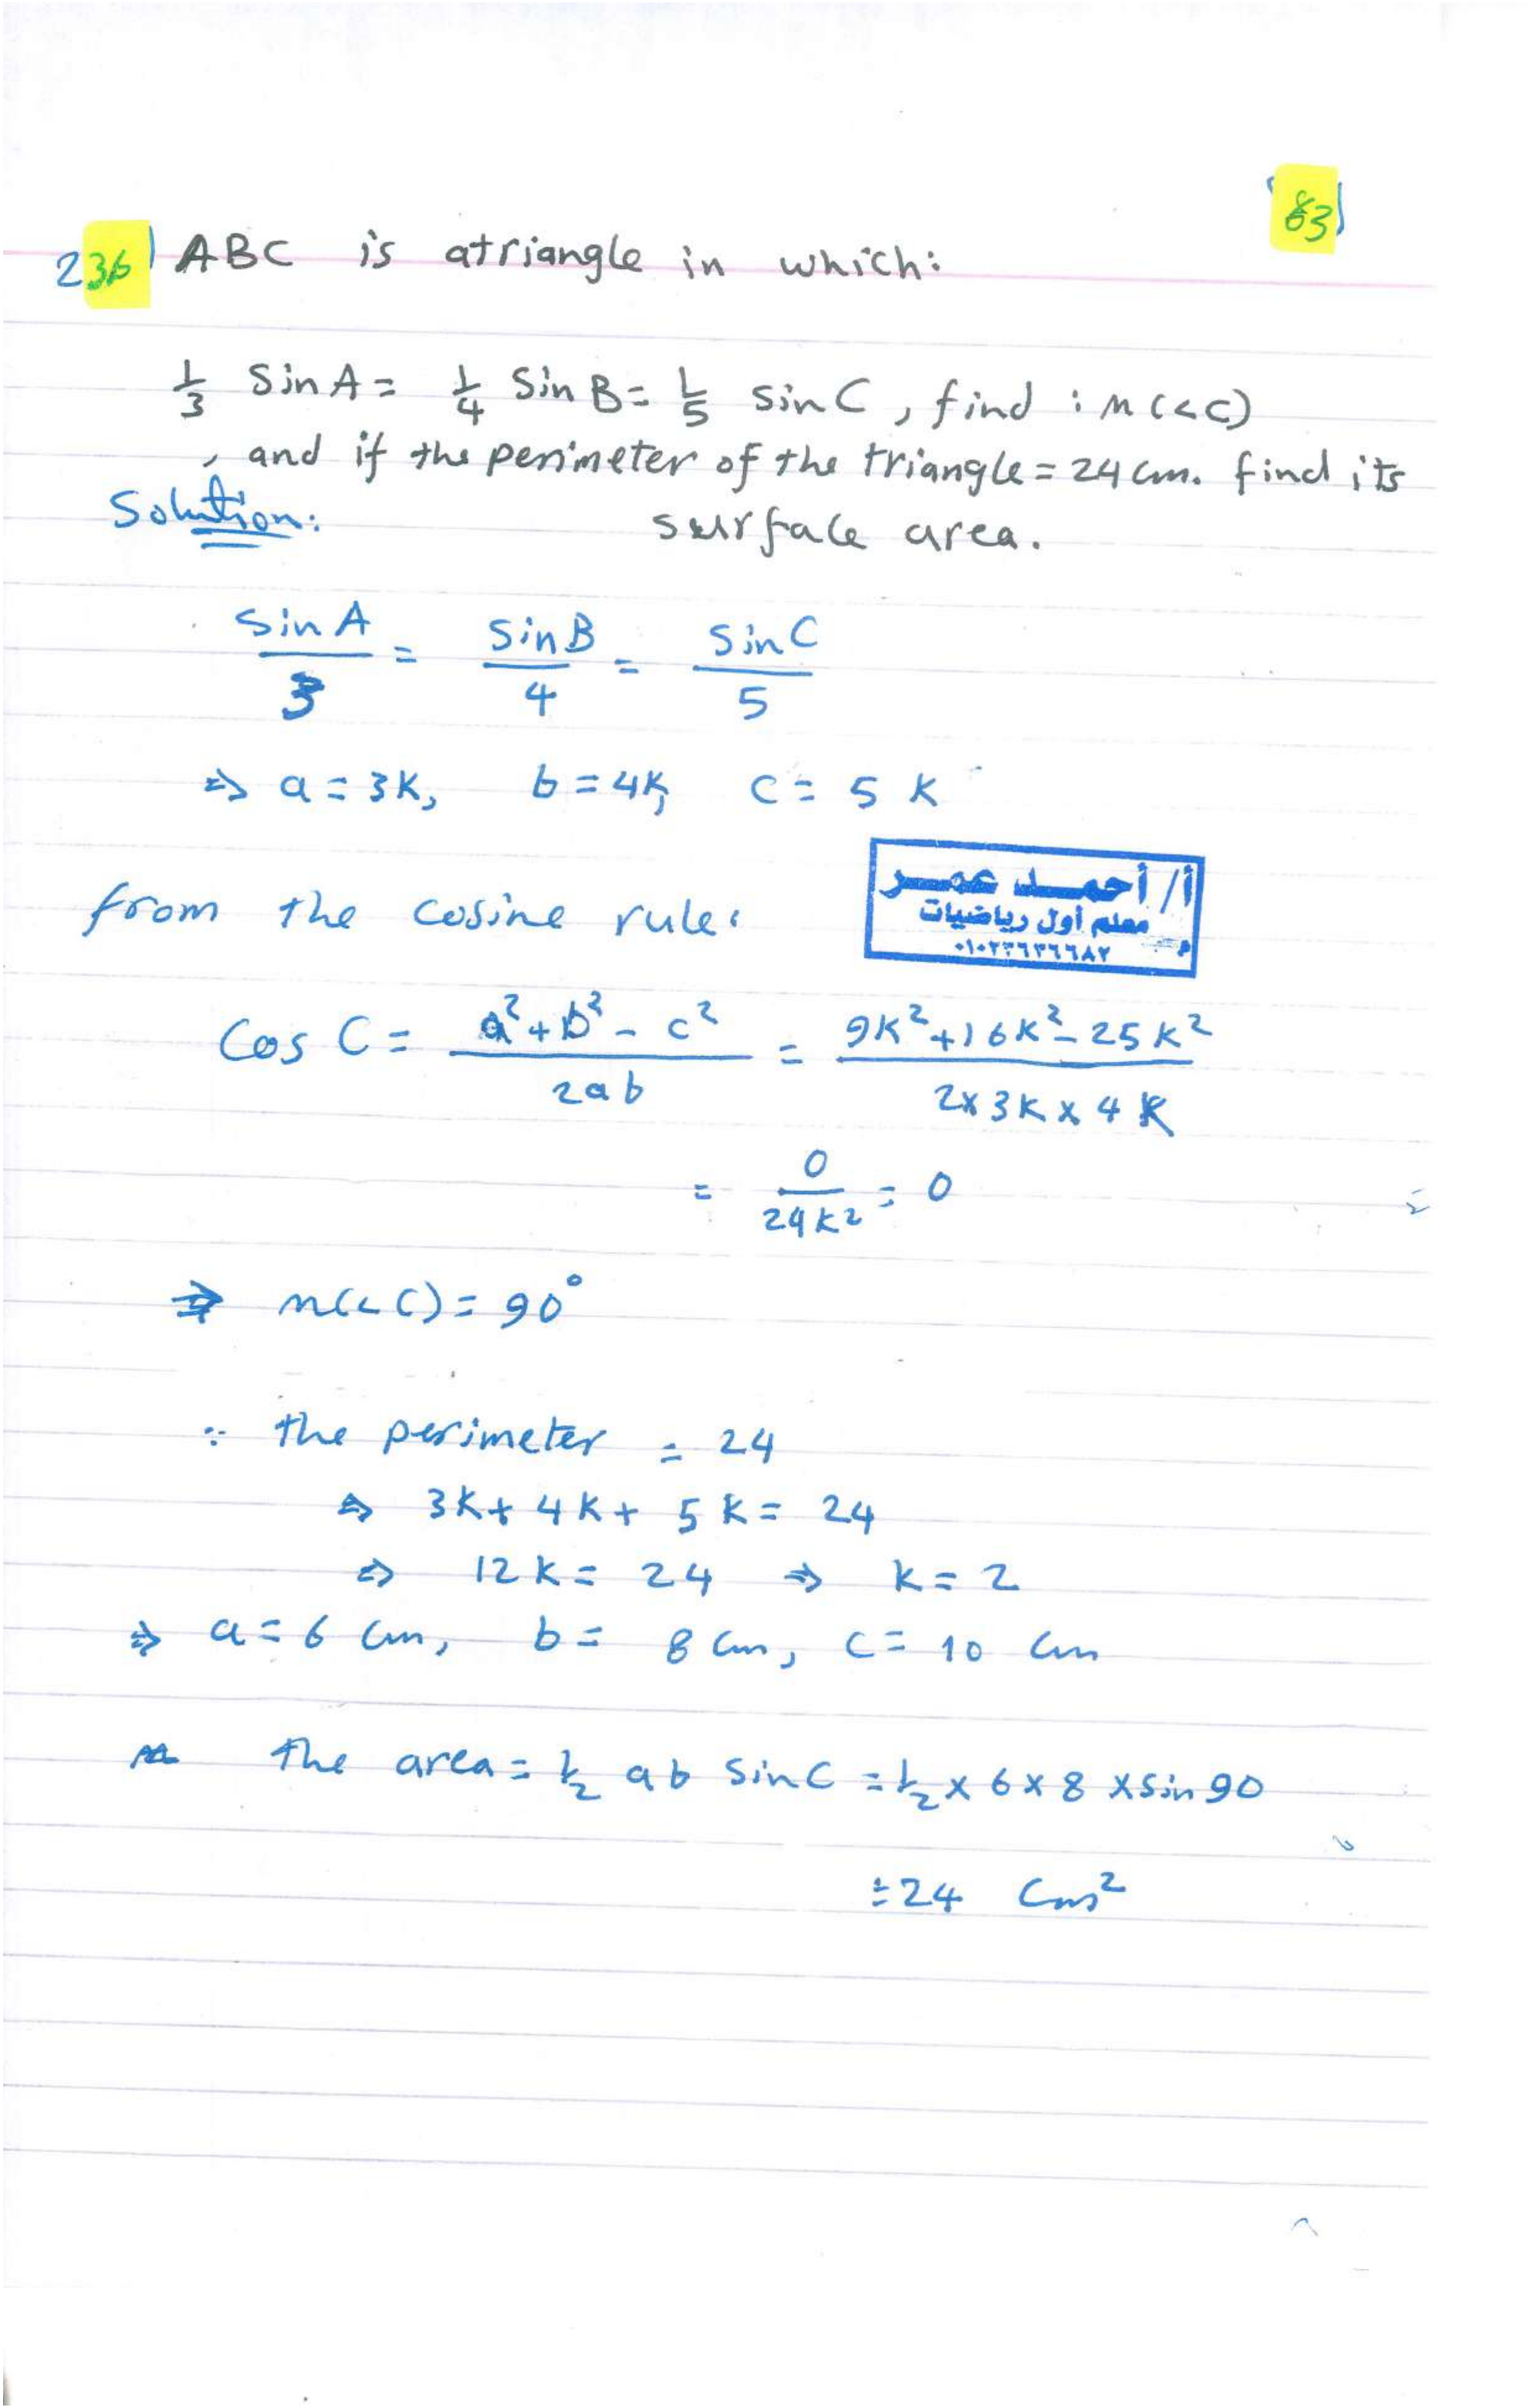 83)
236) ABC is atriangle in which:
1/3 SinA = 1/4 Sin B = 1/5 sinC, find : m(<C)
, and if the perimeter of the triangle = 24 cm. find its
surface area.
Solution:
SinA/3 = SinB/4 = SinC/5
⇒ a = 3K, b = 4K, C = 5 K
أ/ أحمد عمر
معلم أول رياضيات
from the cosine rule:
Cos C = a²+b²-c²/2ab = 9K²+16K²-25K²/2×3K×4K
= 0/24K² = 0
⇒ m(<C) = 90°
∵ the perimeter = 24
⇒ 3K+4K+5K = 24
⇒ 12K = 24 ⇒ K = 2
⇒ a = 6 cm, b = 8 cm, c = 10 cm
the area = 1/2 ab sinC = 1/2 × 6 × 8 × sin 90
= 24 Cm²